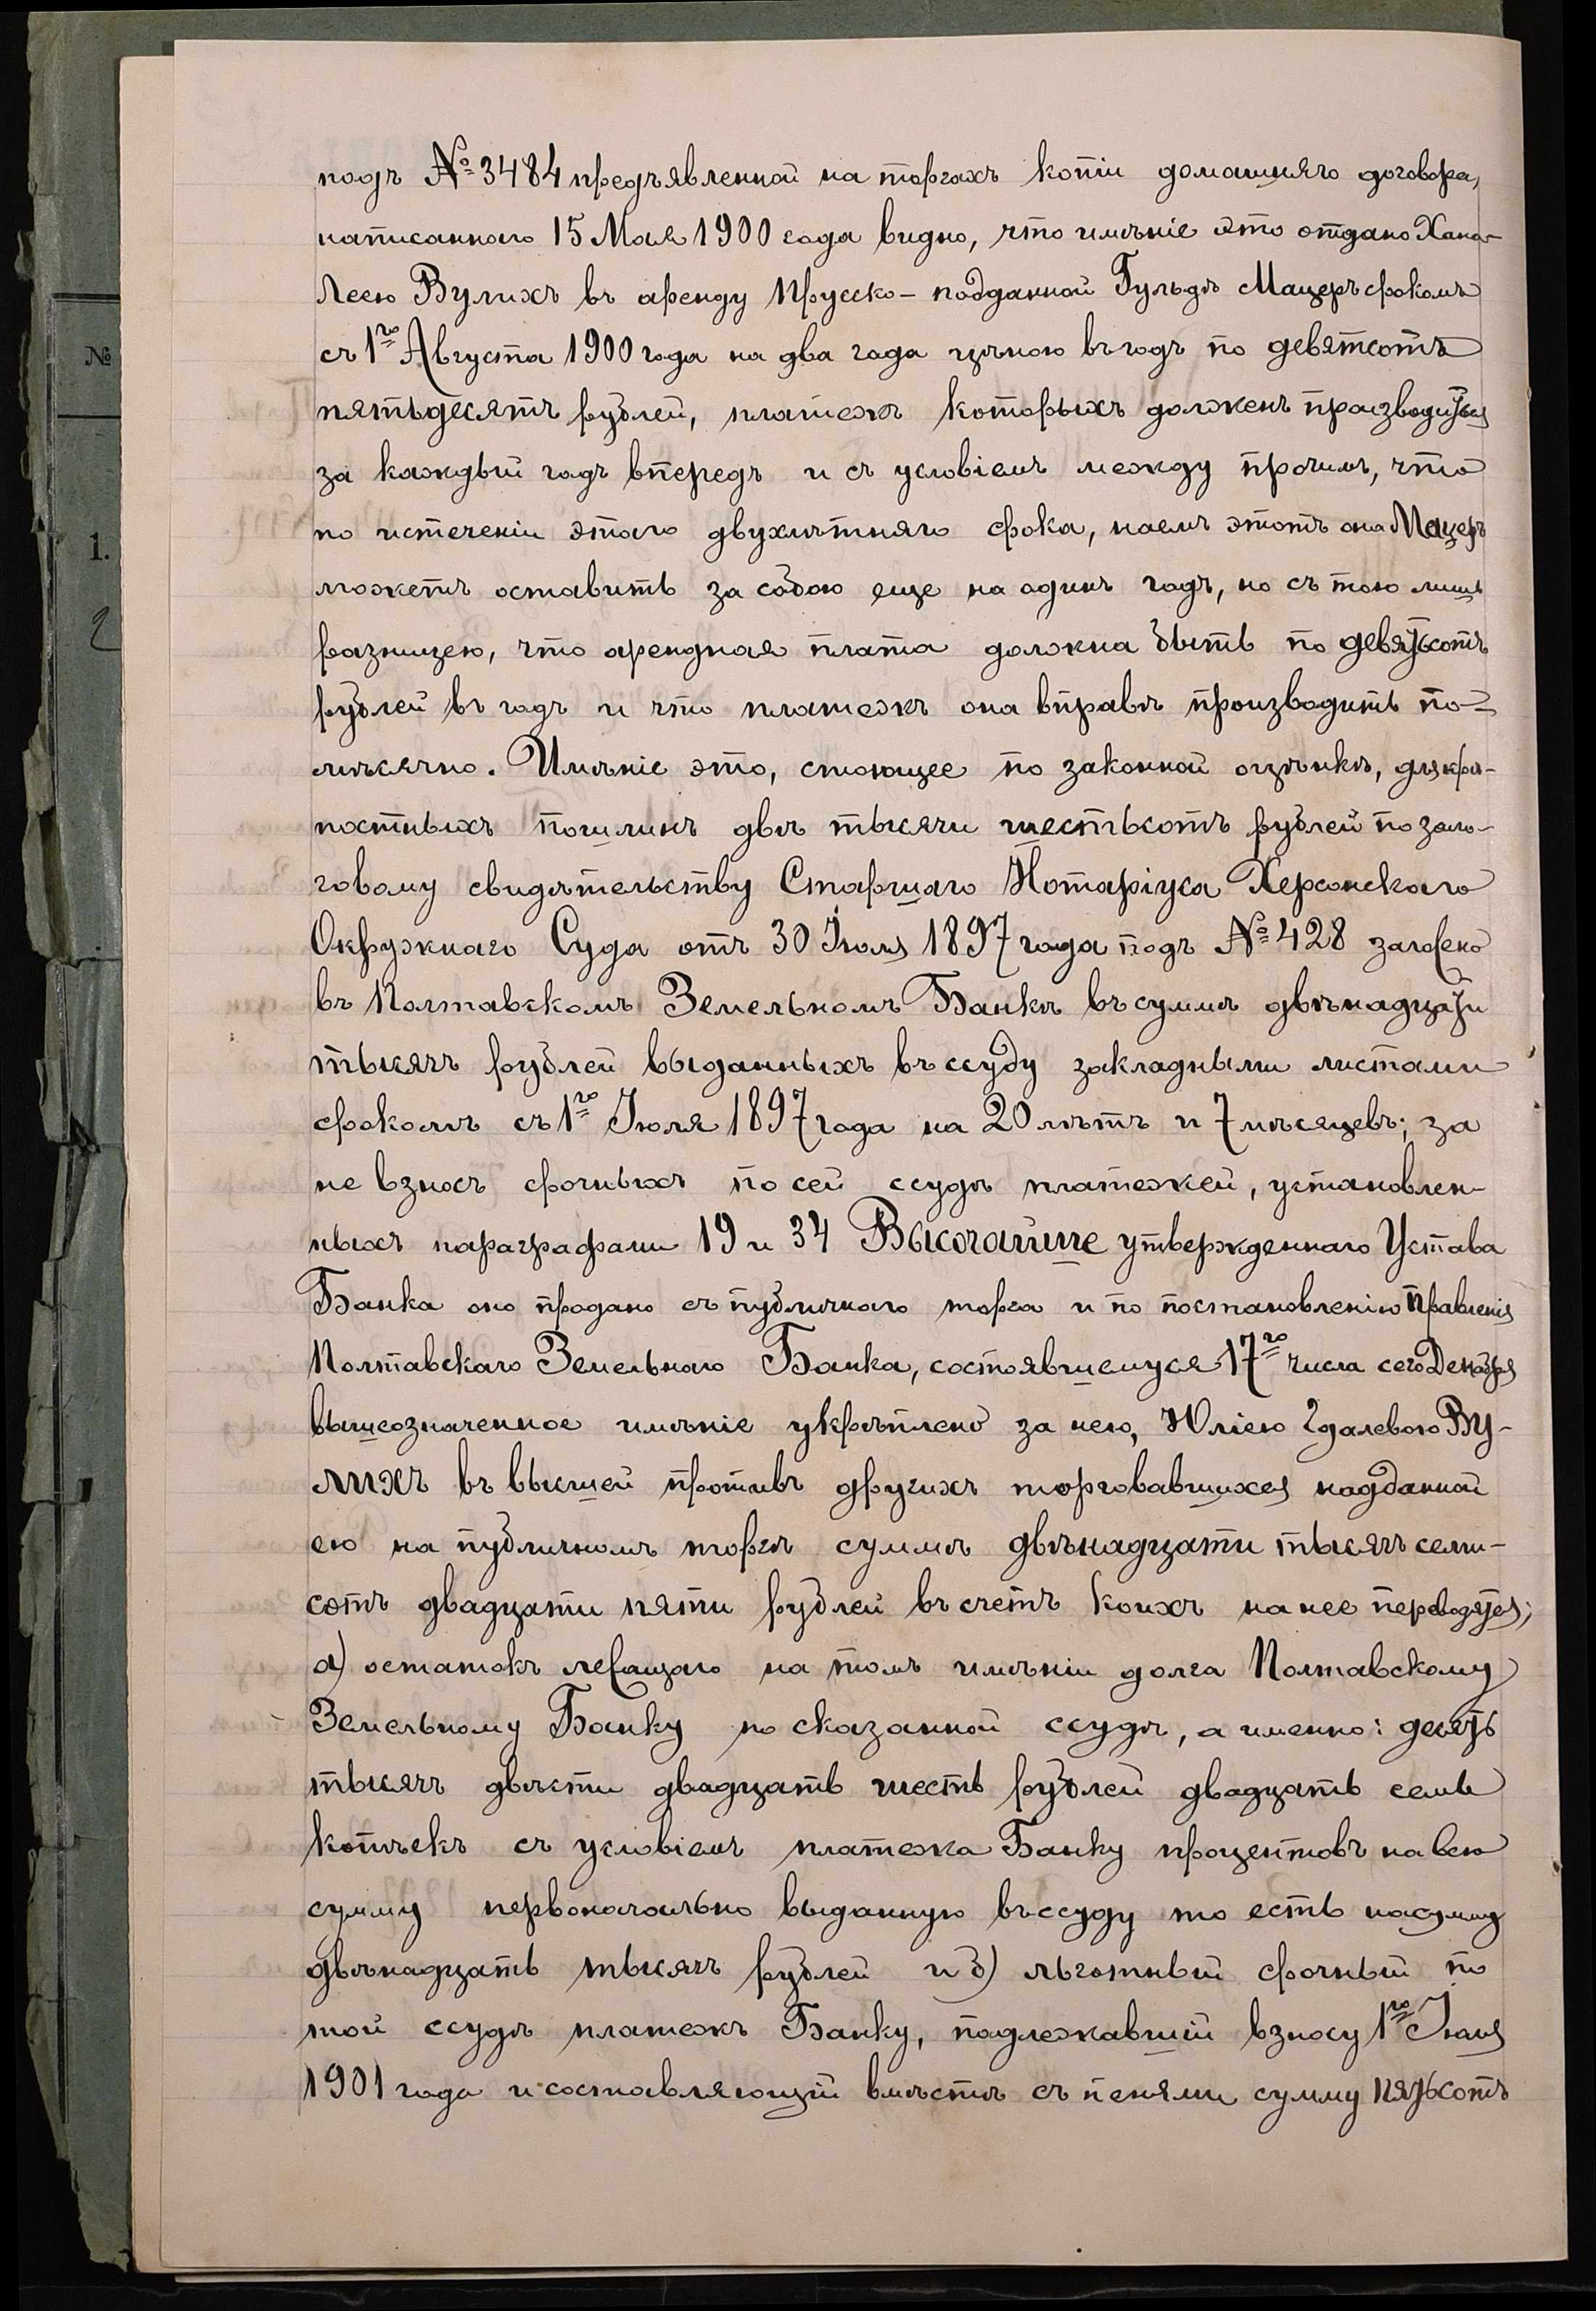 подъ №3484 предъявленной на торгахъ копіи домашняго договора,
написаннаго 15 Мая 1900 года видно, что имѣніе это отдано Хана-
Леею Вулихъ въ аренду Прусско-подданной Гульдѣ Мацеръ срокомъ
съ 1го Августа 1900 года на два года цѣною въ годъ по девятсотъ
пятьдесятъ рублей, платежъ которыхъ долженъ производиться
за каждый годъ впередъ и съ условіемъ между прочимъ, что
по истеченіи этого двухлѣтняго срока, наемъ этотъ она Мацеръ
можетъ оставить за собою еще на одинъ годъ, но съ тою лишь
разницею, что арендная плата должна быть по девятьсотъ
рублей въ годъ и что платежъ она вправѣ производить по-
мѣсячно. Имѣніе это, стоющее по законной оцѣнкѣ, для крѣ-
постныхъ пошлинъ двѣ тысячи шестьсотъ рублей по зало-
говому свидѣтельству Старшаго Нотаріуса Херсонскаго
Окружнаго Суда отъ 30 Іюля 1897 года подъ №428 заложено
въ Полтавскомъ Земельномъ Банкѣ въ суммѣ двѣнадцати
тысячъ рублей выданныхъ въ ссуду закладными листами
срокомъ съ 1го Іюля 1897 года на 20 лѣтъ и 7 мѣсяцевъ; за
не взносъ срочныхъ по сей ссудѣ платежей, установлен-
ныхъ параграфами 19 и 34 Высочайше утвержденнаго Устава
Банка оно продано съ публичнаго торга и по постановленію Правленія
Полтавскаго Земельнаго Банка, состоявшемуся 17го числа сего Декабря
вышеозначенное имѣніе укрѣплено за нею, Юліею Гдалевою Ву-
лихъ въ высшей противъ другихъ торговавшихся надданной
ею на публичномъ торгѣ суммѣ двѣнадцати тысячъ семи-
сотъ двадцати пяти рублей въ счетъ коихъ на нее переводятся;
а) остатокъ лежащаго на томъ имѣніи долга Полтавскому
Земельному Банку по сказанной ссудѣ, а именно: десять
тысячъ двѣсти двадцать шесть рублей двадцать семь
копѣекъ съ условіемъ платежа Банку процентовъ на всю
сумму первоначально выданную въ ссуду то есть на сумму
двѣнадцать тысячъ рублей и б) льготный срочный по
той ссудѣ платежъ Банку, подлежавшій взносу 1го Іюля
1901 года и составляющій вмѣстѣ съ пенями сумму пятьсотъ
№
1.
2